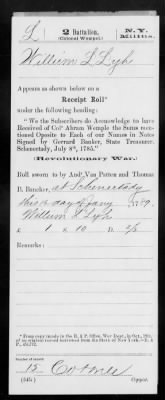 L | 2 Battalion, | N.Y.
(Colonel Wemple) | Militia.
William L Lyh
Appears as shown below on a
Receipt Roll*
under the following heading:
"We the Subscribers do Acknowledge to have
Received of Colº Abram Wemple the Sums
Oposite to Each of our Names in Notes
Signed by Gerrard Banker, State Treasurer
Schenectady, July 8th, 1785."
(Revolutionary War.)
Roll sworn to by And. Van Patten and Thomas
B. Bancker, at Schenectady
this day of
William L Lyh
£ 1 s 10 D.
Remarks:
* From copy made in the R. & P. Office, War Dept., in
of an original record borrowed from the State of New York.—R. & P.
Number of record:
15
(545) Copyist.